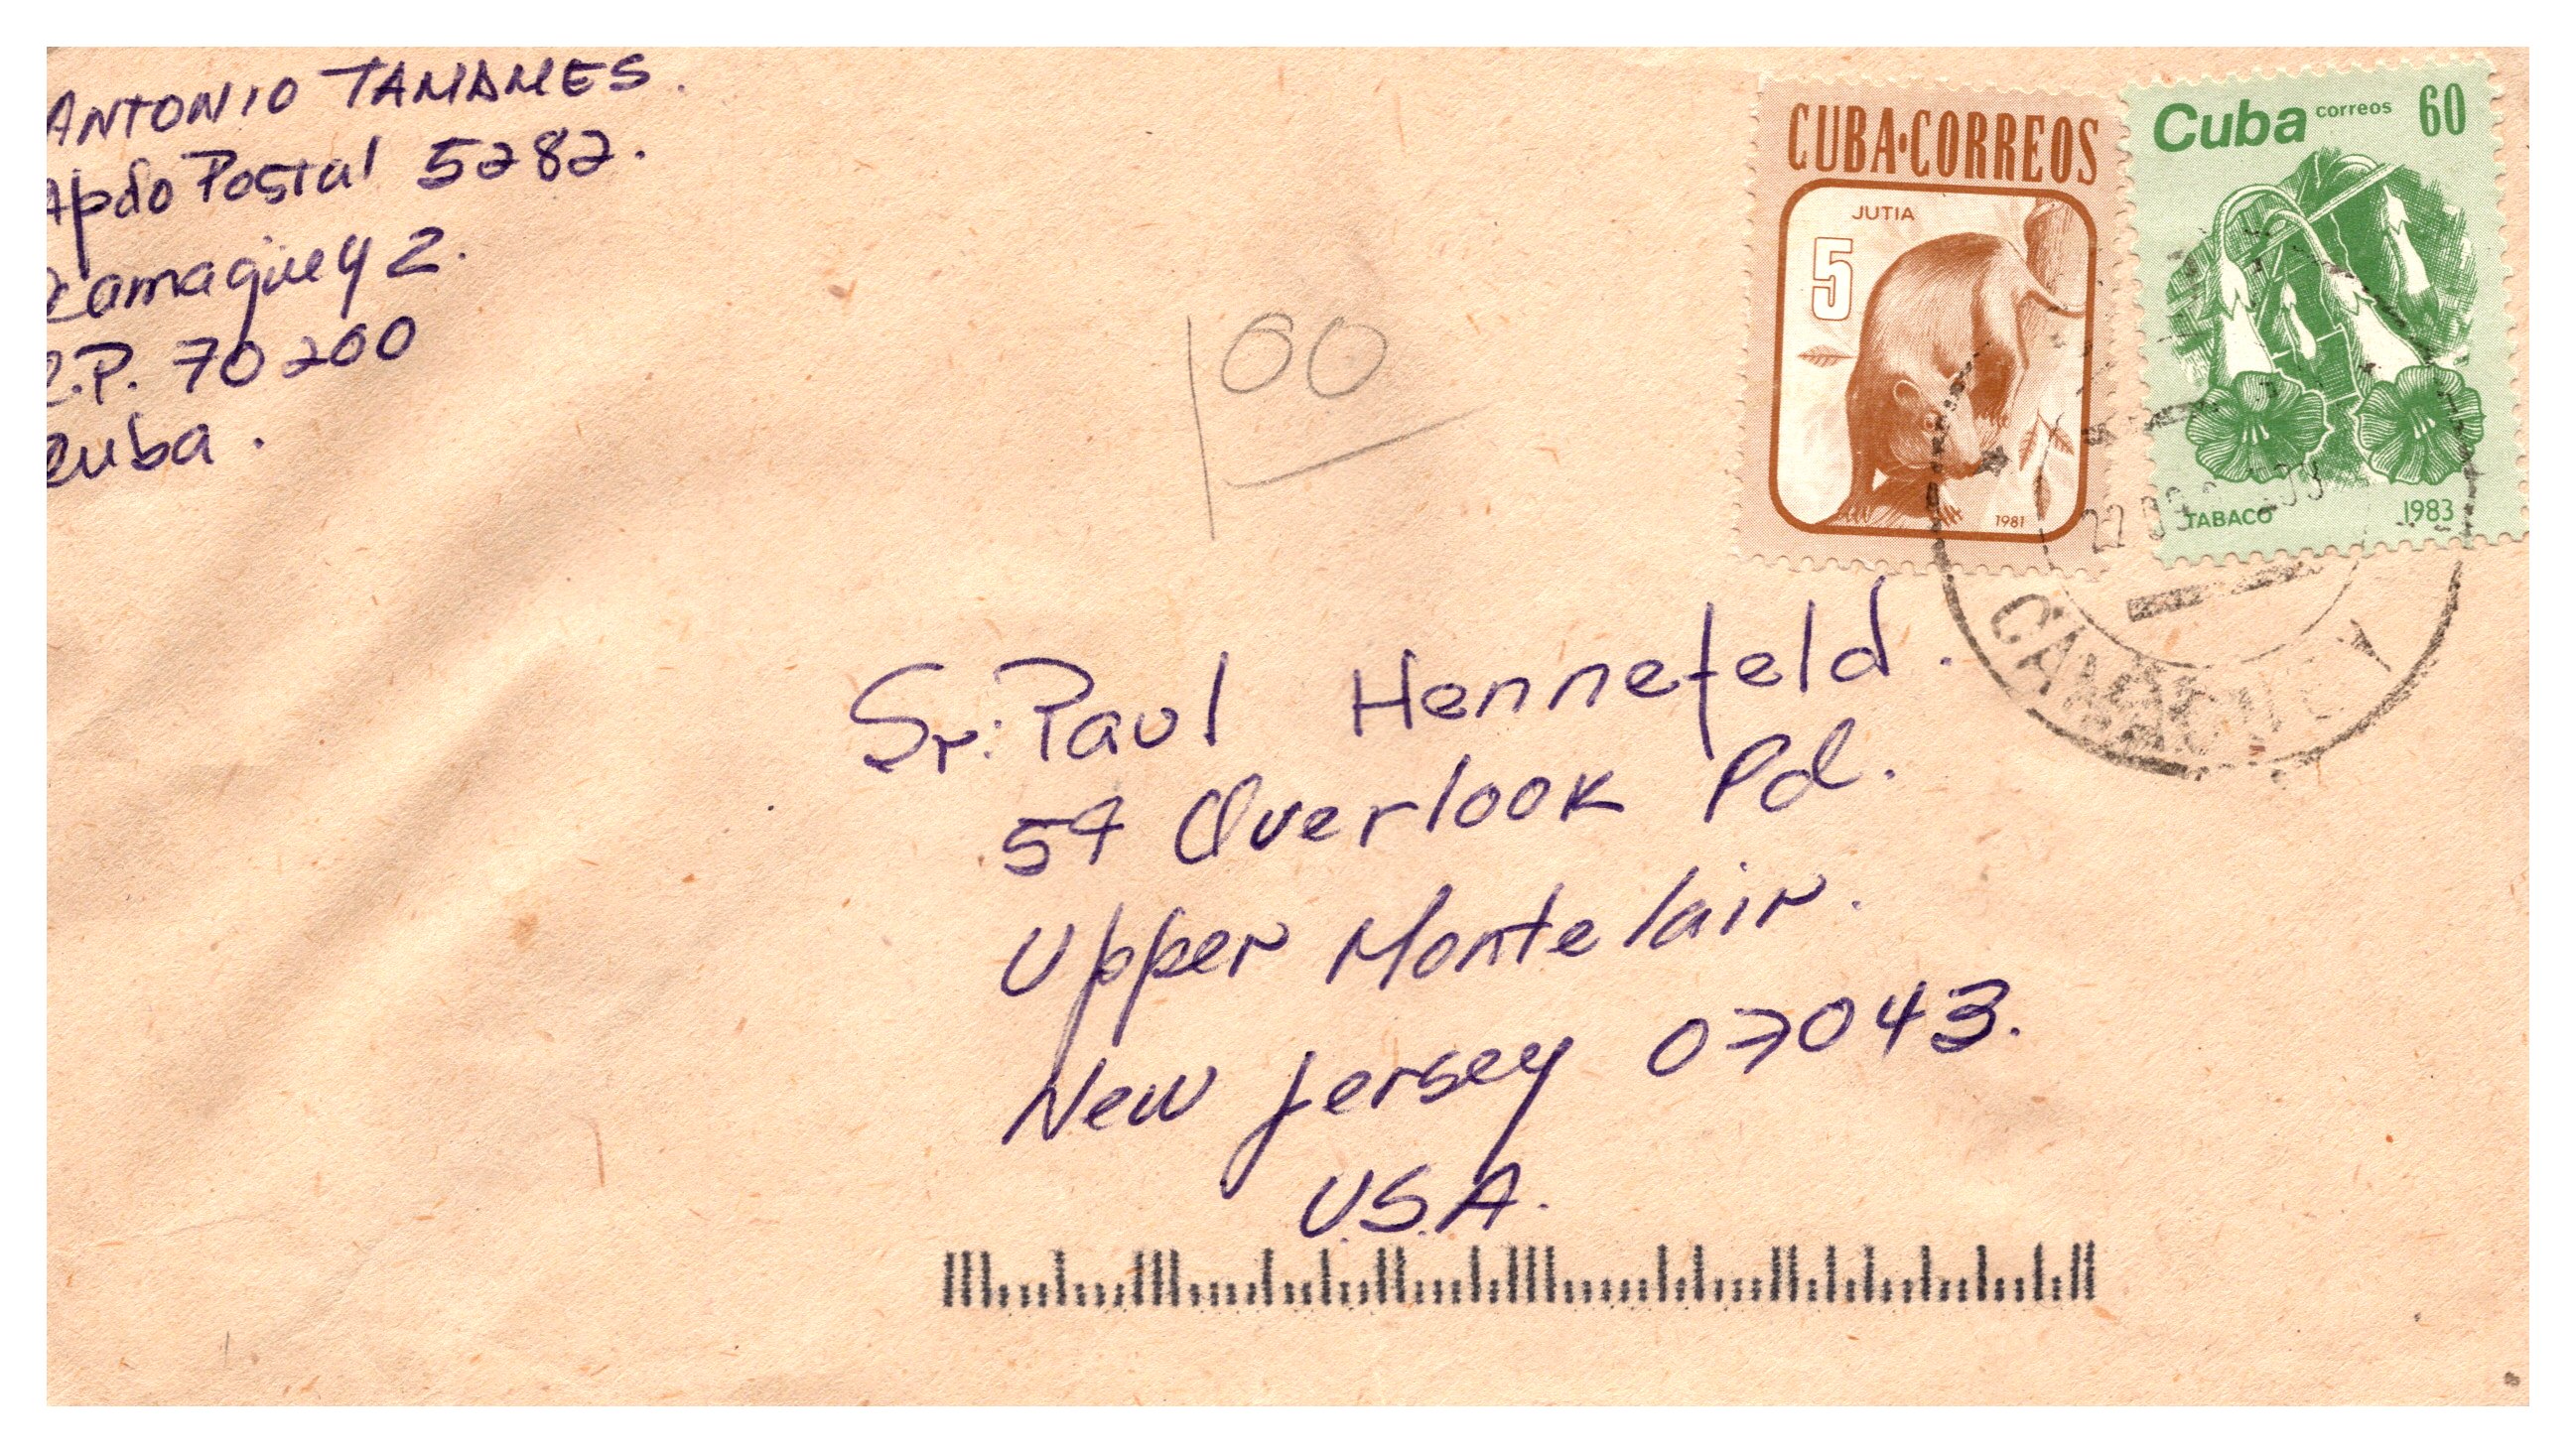 ANTONIO TAMAMES.
Apdo Postal 5282.
Camagüey 2.
C.P. 70200
Cuba.
100
CUBA·CORREOS
JUTIA
5
1981
Cuba correos 60
TABACO 1983
CAMAGUEY
Sr: Paul Hennefeld.
54 Overlook Pd.
Upper Montelair.
New Jersey 07043.
U.S.A.